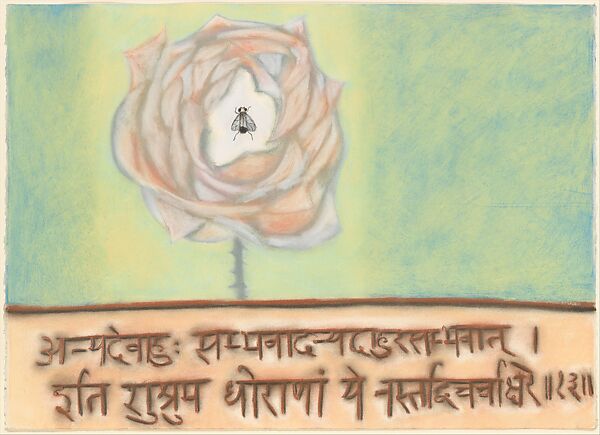 अन्यदेवाहुः सम्भवादन्यदाहुरसम्भवात् ।
इति शुश्रुम धीराणां ये नस्तद्विचचक्षिरे॥१३॥